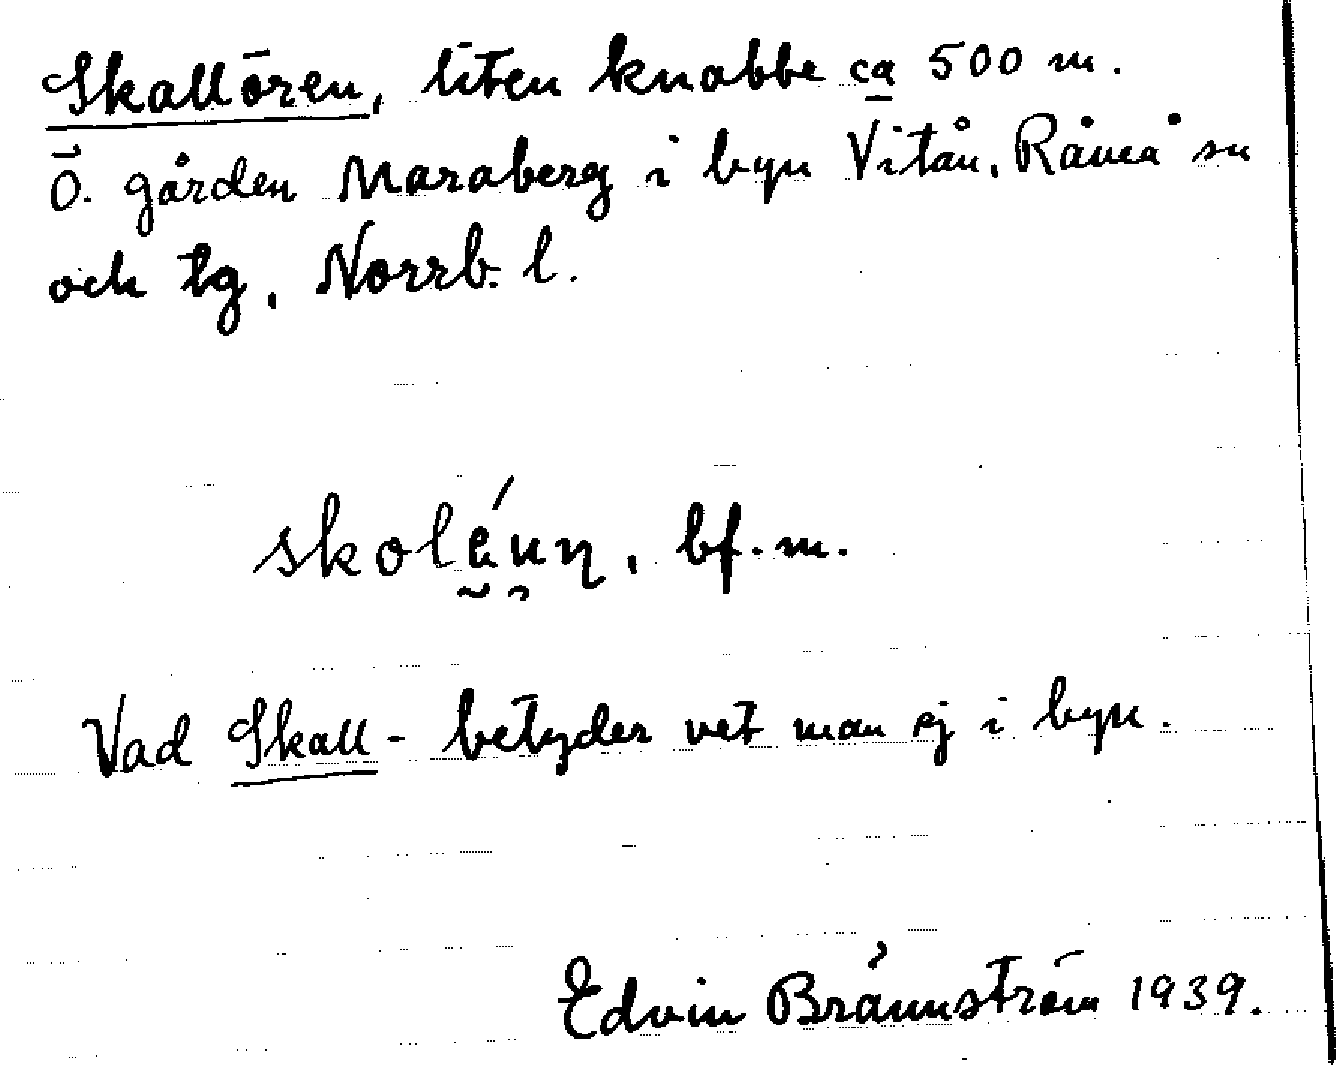 Skallören, liten knabbe ca 500 m.
Ö. gården Maraberg i byn Vitån, Råneå sn
och tg, Norrb. l.
bf. m.
Vad Skall- betyder vet man ej i byn.
Edvin Brännström 1939.